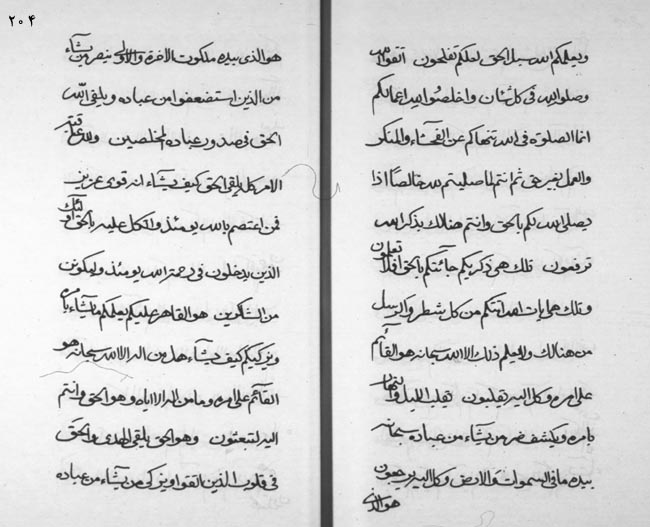 ويعلمكم الله سبل الحق لعلكم تفلحون اتقوا الله
وصلوا لله فى كل شان واخلصوا لله اعمالكم
انما الصلوة فى الله تنهاكم عن الفحشاء والمنكر
والعمل بغير حق ثم انتم لما صليتم لله خالصا اذا
يصلى الله لكم بالحق وانتم هنالك بذكر الله
ترفعون تلك هى ذكرى لكم جائتكم بالحق افلا تعلمون
وتلك هى ايات الله اتتكم من كل شطر والرسل
من هنالك ولا يعلم ذلك الا الله سبحانه هو القائم
على امره وكل اليه تقلبون يقلب الليل والنهار
بامره ويكشف ضر من يشاء من عباده سبحانه
بيده ما فى السموات والارض وكل اليه يرجعون
هو الذى
٢٠٤
هو الذى بيده ملكوت الاخرة والاولى ينصر من يشاء
من الذين استضعفوا من عباده ويلقى الله
الحق فى صدور عباده المخلصين ولله عاقبة
الامر كله يلقى الحق كيف يشاء انه قوى عزيز
فمن اعتصم بالله يومئذ واتكل عليه بالحق اولئك
الذين يدخلون فى رحمة الله يومئذ وليكونن
من الشاكرين هو القاهر عليكم يعلمكم ما يشاء بامره
ويزكيكم كيف يشاء هل من اله الا الله سبحانه هو
القائم على امره وما من اله الا اياه وهو الحق وانتم
اليه لتبعثون وهو الحق يلقى الهدى والحق
فى قلوب الذين اتقوا ويزكى من يشاء من عباده